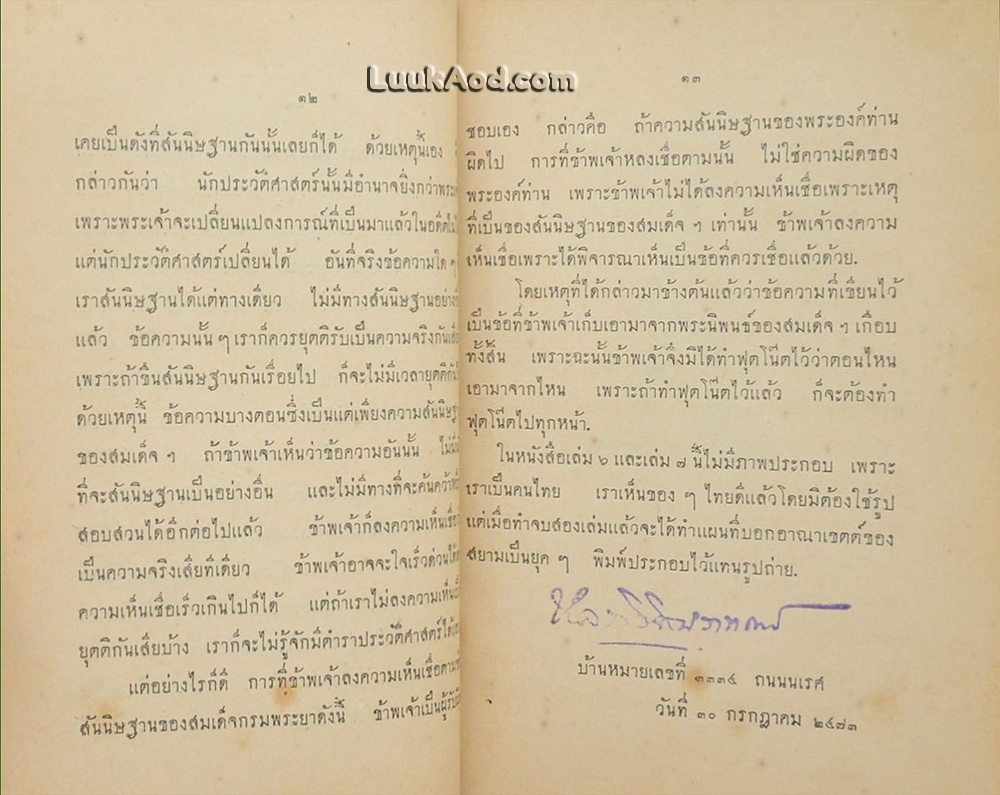 LuukAod.com
๑๒
เคยเป็นดังที่สันนิษฐานกันนั้นเลยก็ได้ ด้วยเหตุนี้เอง
กล่าวกันว่า นักประวัติศาสตร์นั้นมีอำนาจยิ่งกว่าพระ
เพราะพระเจ้าจะเปลี่ยนแปลงการณ์ที่เป็นมาแล้วในอดีต
แต่นักประวัติศาสตร์เปลี่ยนได้ อันที่จริงข้อความใด ๆ
เราสันนิษฐานได้แต่ทางเดียว ไม่มีทางสันนิษฐาน
แล้ว ข้อความนั้น ๆ เราก็ควรยุตติรับเป็นความจริงกัน
เพราะถ้าขืนสันนิษฐานกันเรื่อยไป ก็จะไม่มีเวลายุตติ
ด้วยเหตุนี้ ข้อความบางตอนซึ่งเป็นแต่เพียงความ
ของสมเด็จ ฯ ถ้าข้าพเจ้าเห็นว่าข้อความอันนั้น
ที่จะสันนิษฐานเป็นอย่างอื่น และไม่มีทางที่จะค้นคว้า
สอบสวนได้อีกต่อไปแล้ว ข้าพเจ้าก็ลงความเห็น
เป็นความจริงเสียทีเดียว ข้าพเจ้าอาจจะใจเร็วด่วนได้
ความเห็นเชื่อเร็วเกินไปก็ได้ แต่ถ้าเราไม่ลงความเห็น
ยุตติกันเสียบ้าง เราก็จะไม่รู้จักมีตำราประวัติศาสตร์ได้
แต่อย่างไรก็ดี การที่ข้าพเจ้าลงความเห็นเชื่อตาม
สันนิษฐานของสมเด็จกรมพระยาดังนี้ ข้าพเจ้าเป็นผู้รับ
๑๓
ชอบเอง กล่าวคือ ถ้าความสันนิษฐานของพระองค์ท่าน
ผิดไป การที่ข้าพเจ้าหลงเชื่อตามนั้น ไม่ใช่ความผิดของ
พระองค์ท่าน เพราะข้าพเจ้าไม่ได้ลงความเห็นเชื่อเพราะเหตุ
ที่เป็นของสันนิษฐานของสมเด็จ ฯ เท่านั้น ข้าพเจ้าลงความ
เห็นเชื่อเพราะได้พิจารณาเห็นเป็นข้อที่ควรเชื่อแล้วด้วย.
โดยเหตุที่ได้กล่าวมาข้างต้นแล้วว่าข้อความที่เขียนไว้
เป็นข้อที่ข้าพเจ้าเก็บเอามาจากพระนิพนธ์ของสมเด็จ ฯ เกือบ
ทั้งสิ้น เพราะฉะนั้นข้าพเจ้าจึงมิได้ทำฟุตโน๊ตไว้ว่าตอนไหน
เอามาจากไหน เพราะถ้าทำฟุตโน๊ตไว้แล้ว ก็จะต้องทำ
ฟุตโน๊ตไปทุกหน้า.
ในหนังสือเล่ม ๖ และเล่ม ๗ นี้ไม่มีภาพประกอบ เพราะ
เราเป็นคนไทย เราเห็นของ ๆ ไทยดีแล้วโดยมิต้องใช้รูป
แต่เมื่อทำจบสองเล่มแล้วจะได้ทำแผนที่บอกอาณาเขตต์ของ
สยามเป็นยุค ๆ พิมพ์ประกอบไว้แทนรูปถ่าย.
บ้านหมายเลขที่ ๓๓๓๔ ถนนนเรศ
วันที่ ๓๐ กรกฎาคม ๒๔๗๓